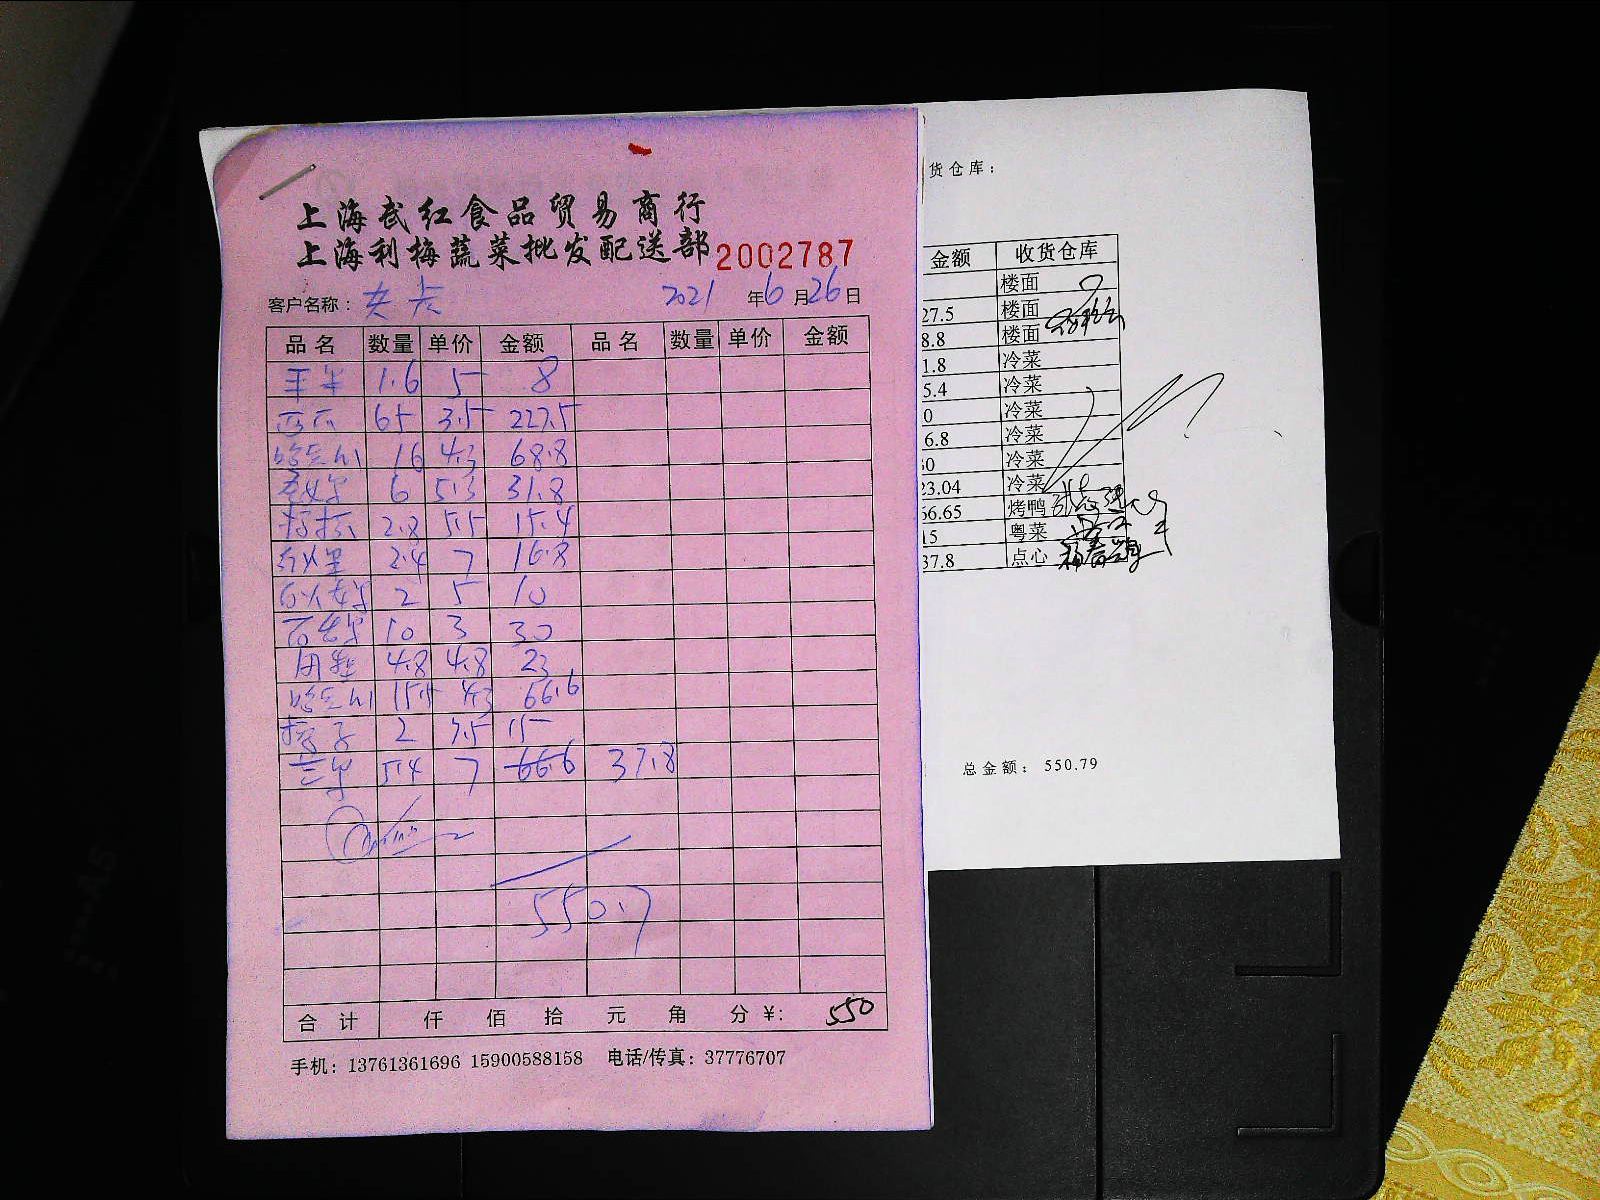 上海武红食品贸易商行
上海利梅蔬菜批发配送部 2002787
客户名称： 2021 年 6 月 26 日
品名 数量 单价 金额 品名 数量 单价 金额
1.6 5 8
西瓜 65 3.5 227.5
哈密瓜 16 4.3 68.8
6 5.3 31.8
2.8 5.5 15.4
2.4 7 16.8
2 5 10
10 3 30
4.8 4.8 23
哈密瓜 15.5 4.3 66.6
2 7.5 15
5.4 7 66.6 37.8
550.7
合计 仟 佰 拾 元 角 分 ¥: 550
手机：13761361696 15900588158 电话/传真：37776707
货仓库：
金额 收货仓库
楼面
27.5 楼面
8.8 楼面
1.8 冷菜
5.4 冷菜
0 冷菜
6.8 冷菜
30 冷菜
23.04 冷菜
66.65 烤鸭
15 粤菜
37.8 点心
总金额：550.79